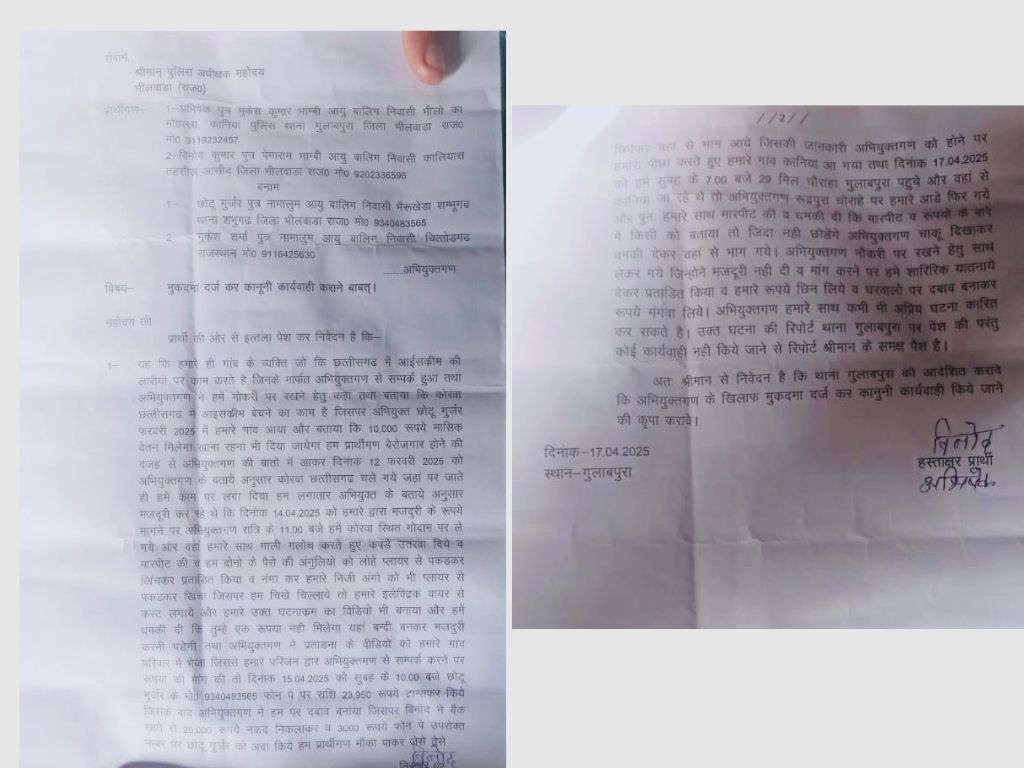 सेवामें,
श्रीमान् पुलिस अधीक्षक महोदय
भीलवाडा (राज0)
प्रार्थीगण– 1–अभिषेक पुत्र मुकेश कुमार भाम्बी आयु बालिग निवासी भीलो का
मोहल्ला, कानिया पुलिस थाना गुलाबपुरा जिला भीलवाडा राज0
मो0 9119232457
2–विनोद कुमार पुत्र पेमाराम भाम्बी आयु बालिग निवासी कालियास
तहसील आसीद जिला भीलवाडा राज0 मो0 9202336596
बनाम
1– छोटू गुर्जर पुत्र नामालुम आयु बालिग निवासी भैरूखेडा शम्भूगढ
थाना शंभुगढ जिला भीलवाडा राज0 मो0 9340483565
2– मुकेश शर्मा पुत्र नामालुम आयु बालिग निवासी चित्तोडगढ
राजस्थान मो0 9116425630
........अभियुक्तगण
विषय– मुकदमा दर्ज कर कानूनी कार्यवाही कराने बाबत्।
महोदय जी
प्रार्थी की ओर से इत्तला पेश कर निवेदन है कि–
1– यह कि हमारे ही गांव के व्यक्ति जो कि छत्तीसगढ में आईसकीम की
लारीयो पर काम करते है जिनके मार्फत अभियुक्तगण से सम्पर्क हुआ तथा
अभियुक्तगण ने हमें नोकरी पर रखने हेतु कहा तथा बताया कि कोरवा
छत्तीसगढ में आइसकीम बेचने का काम है जिसपर अभियुक्त छोटू गुर्जर
फरवरी 2025 में हमारे गांव आया और बताया कि 10,000 रूपये मासिक
वेतन मिलेगा खाना रहना भी दिया जायेगा हम प्रार्थीगण बेरोजगार होने की
वजह से अभियुक्तगण की बातो में आकर दिनांक 12 फरवरी 2025 को
अभियुक्तगण के बताये अनुसार कोरवा छत्तीसगढ चले गये जहां पर जाते
ही हमे काम पर लगा दिया हम लगातार अभियुक्त के बताये अनुसार
मजदूरी कर रहे थे कि दिनांक 14.04.2025 को हमारे द्वारा मजदुरी के रूपये
मागने पर अभियुक्तगण रात्रि के 11.00 बजे हमें कोरवा स्थित गोदाम पर ले
गये और वहां हमारे साथ गाली गलोच करते हुए कपडे उतरवा दिये व
मारपीट की व हम दोनो के पैरो की अंगुलियो को लोहे प्लायर से पकडकर
खिंचकर प्रताडित किया व नंगा कर हमारे निजी अंगो को भी प्लायर से
पकडकर खिंचा जिसपर हम चिखे चिल्लाये तो हमारे इलेक्ट्रिक वायर से
करंट लगाये और हमारे उक्त घटनाकम का विडियो भी बनाया और हमें
धमकी दी कि तुम्हे एक रूपया नही मिलेगा यहां बन्दी बनकर मजदुरी
करनी पडेगी तथा अभियुक्तगण ने प्रताडना के वीडियो को हमारे गांव
परिवार में भेजा जिससे हमारे परिजन द्वार अभियुक्तगण से सम्पर्क करने पर
रूपयो की मांग की तो दिनांक 15.04.2025 को सुबह के 10.00 बजे छोटू
गुर्जर के मो0 9340483565 फोन पे पर राशि 23,950 रूपये टान्सफर किये
जिसके बाद अभियुक्तगण ने हम पर दबाव बनाया जिसपर विनोद ने बैंक
खाते से 20,000 रूपये नकद निकलाकर व 3000 रूपये फोन पे उपरोक्त
नम्बर पर छोटू गुर्जर को अदा किये हम प्रार्थीगण मौका पाकर जेसे तेसे
विनोद
//2//
छिपकर वहां से भाग आये जिसकी जानकारी अभियुक्तगण को होने पर
हमारा पीछा करते हुए हमारे गांव कानिया आ गया तथा दिनांक 17.04.2025
को हम सुबह के 7.00 बजे 29 मिल चौराहा गुलाबपुरा पहुचे और वहां से
कानिया जा रहे थे तो अभियुक्तगण रूद्रपुरा चोराहे पर हमारे आडे फिर गये
और पुनः हमारे साथ मारपीट की व धमकी दी कि मारपीट व रूपयो के बारे
में किसी को बताया तो जिंदा नही छोडेंगे अभियुक्तगण चाकू दिखाकर
धमकी देकर वहां से भाग गये। अभियुक्तगण नौकरी पर रखने हेतु साथ
लेकर गये जिन्होने मजदूरी नही दी व मांग करने पर हमे शारिरिक यातनाये
देकर प्रताडित किया व हमारे रूपये छिन लिये व घरवालो पर दबाव बनाकर
रूपये मंगवा लिये। अभियुक्तगण हमारे साथ कभी भी अप्रिय घटना कारित
कर सकते है। उक्त घटना की रिपोर्ट थाना गुलाबपुरा पर पेश की परंतु
कोई कार्यवाही नही किये जाने से रिपोर्ट श्रीमान के समक्ष पेश है।
अतः श्रीमान से निवेदन है कि थाना गुलाबपुरा को आदेशित करावे
कि अभियुक्तगण के खिलाफ मुकदमा दर्ज कर कानुनी कार्यवाही किये जाने
की कृपा करावे।
दिनांक–17.04.2025
स्थान–गुलाबपुरा
विनोद
हस्ताक्षर प्रार्थी
अभिषेक